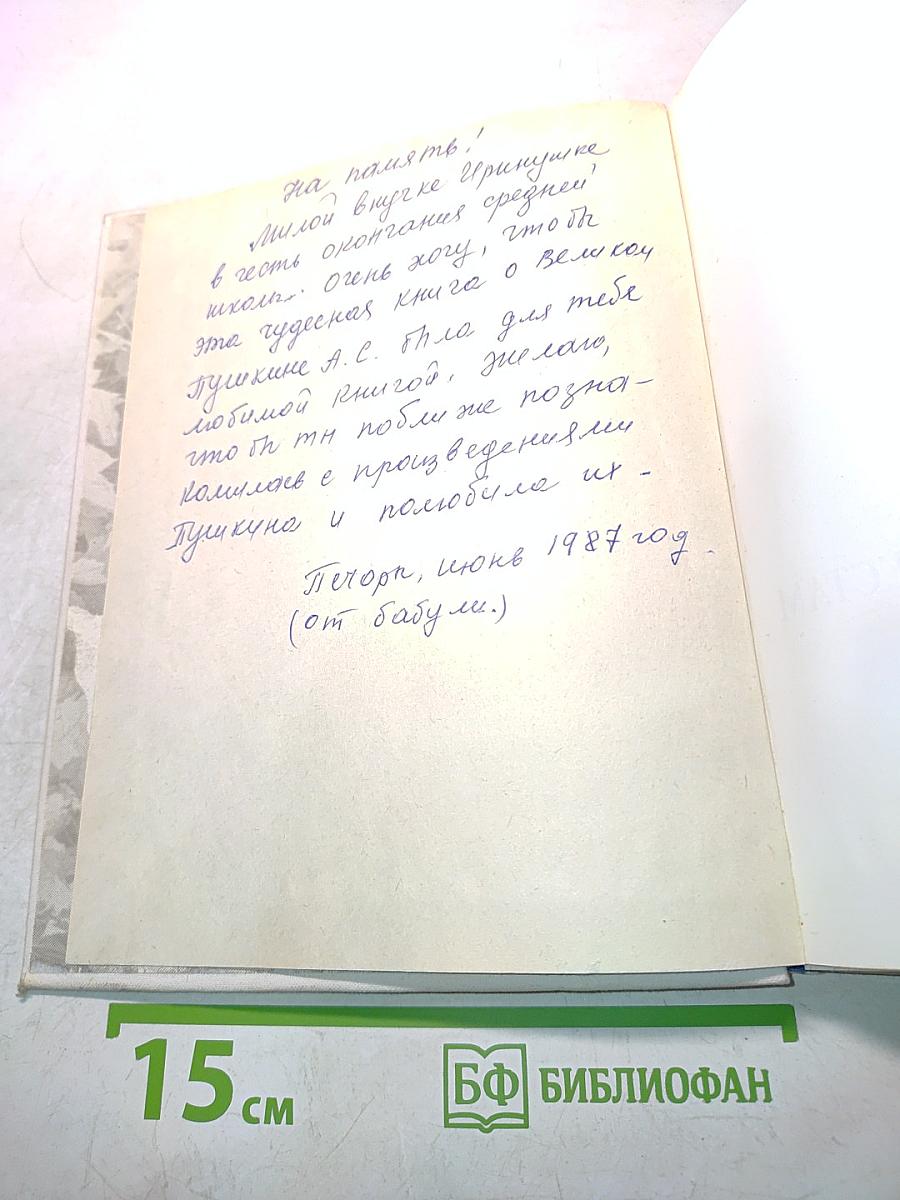 На память!
Милой внучке Иринушке
в честь окончания средней
школы. Очень хочу, чтобы
эта чудесная книга о Великом
Пушкине А.С. была для тебя
любимой книгой. Желаю,
чтобы ты поближе позна-
комилась с произведениями
Пушкина и полюбила их -
Печоры, июнь 1987 год.
(от бабули.)
15 см
БФ БИБЛИОФАН